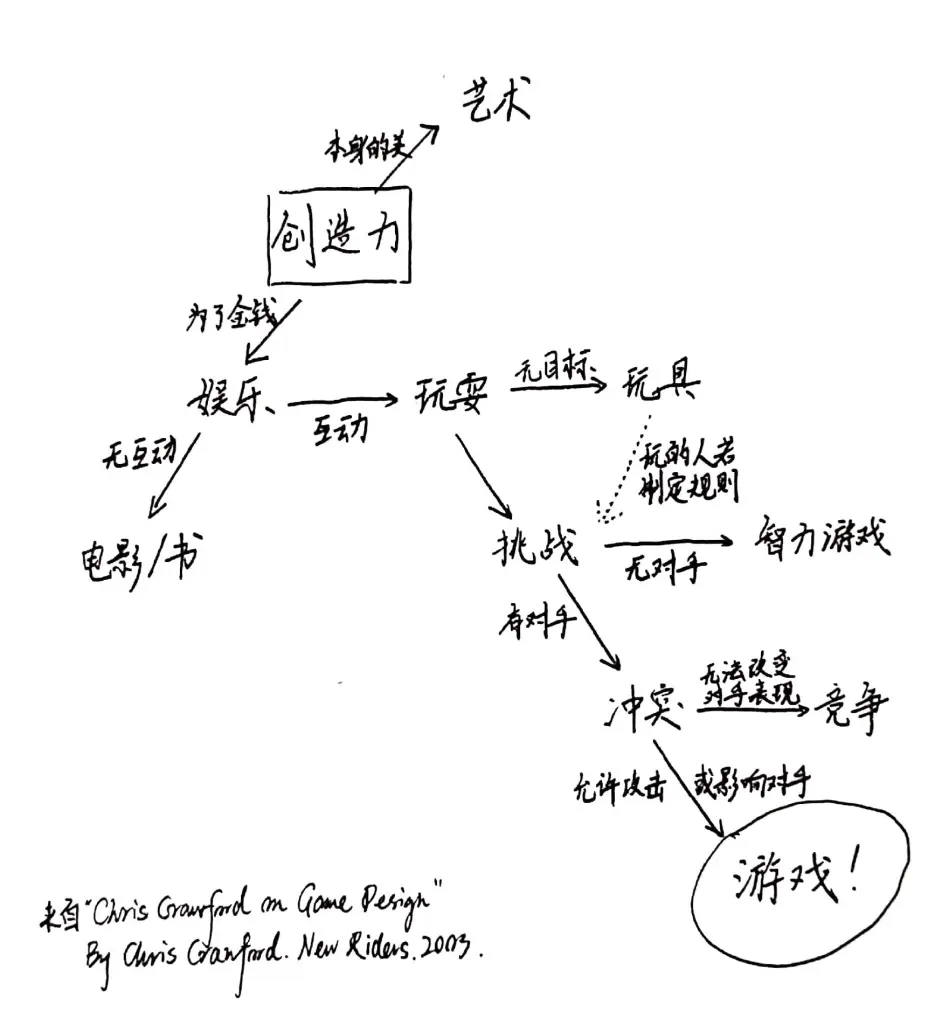 艺术
本身的美
创造力
为了金钱
娱乐
互动
玩耍
无目标
玩具
无互动
玩的人若
制定规则
电影/书
挑战
无对手
智力游戏
有对手
冲突
无法改变
对手表现
竞争
允许攻击 或影响对手
游戏!
来自"Chris Crawford on Game Design"
By Chris Crawford. New Riders. 2003.